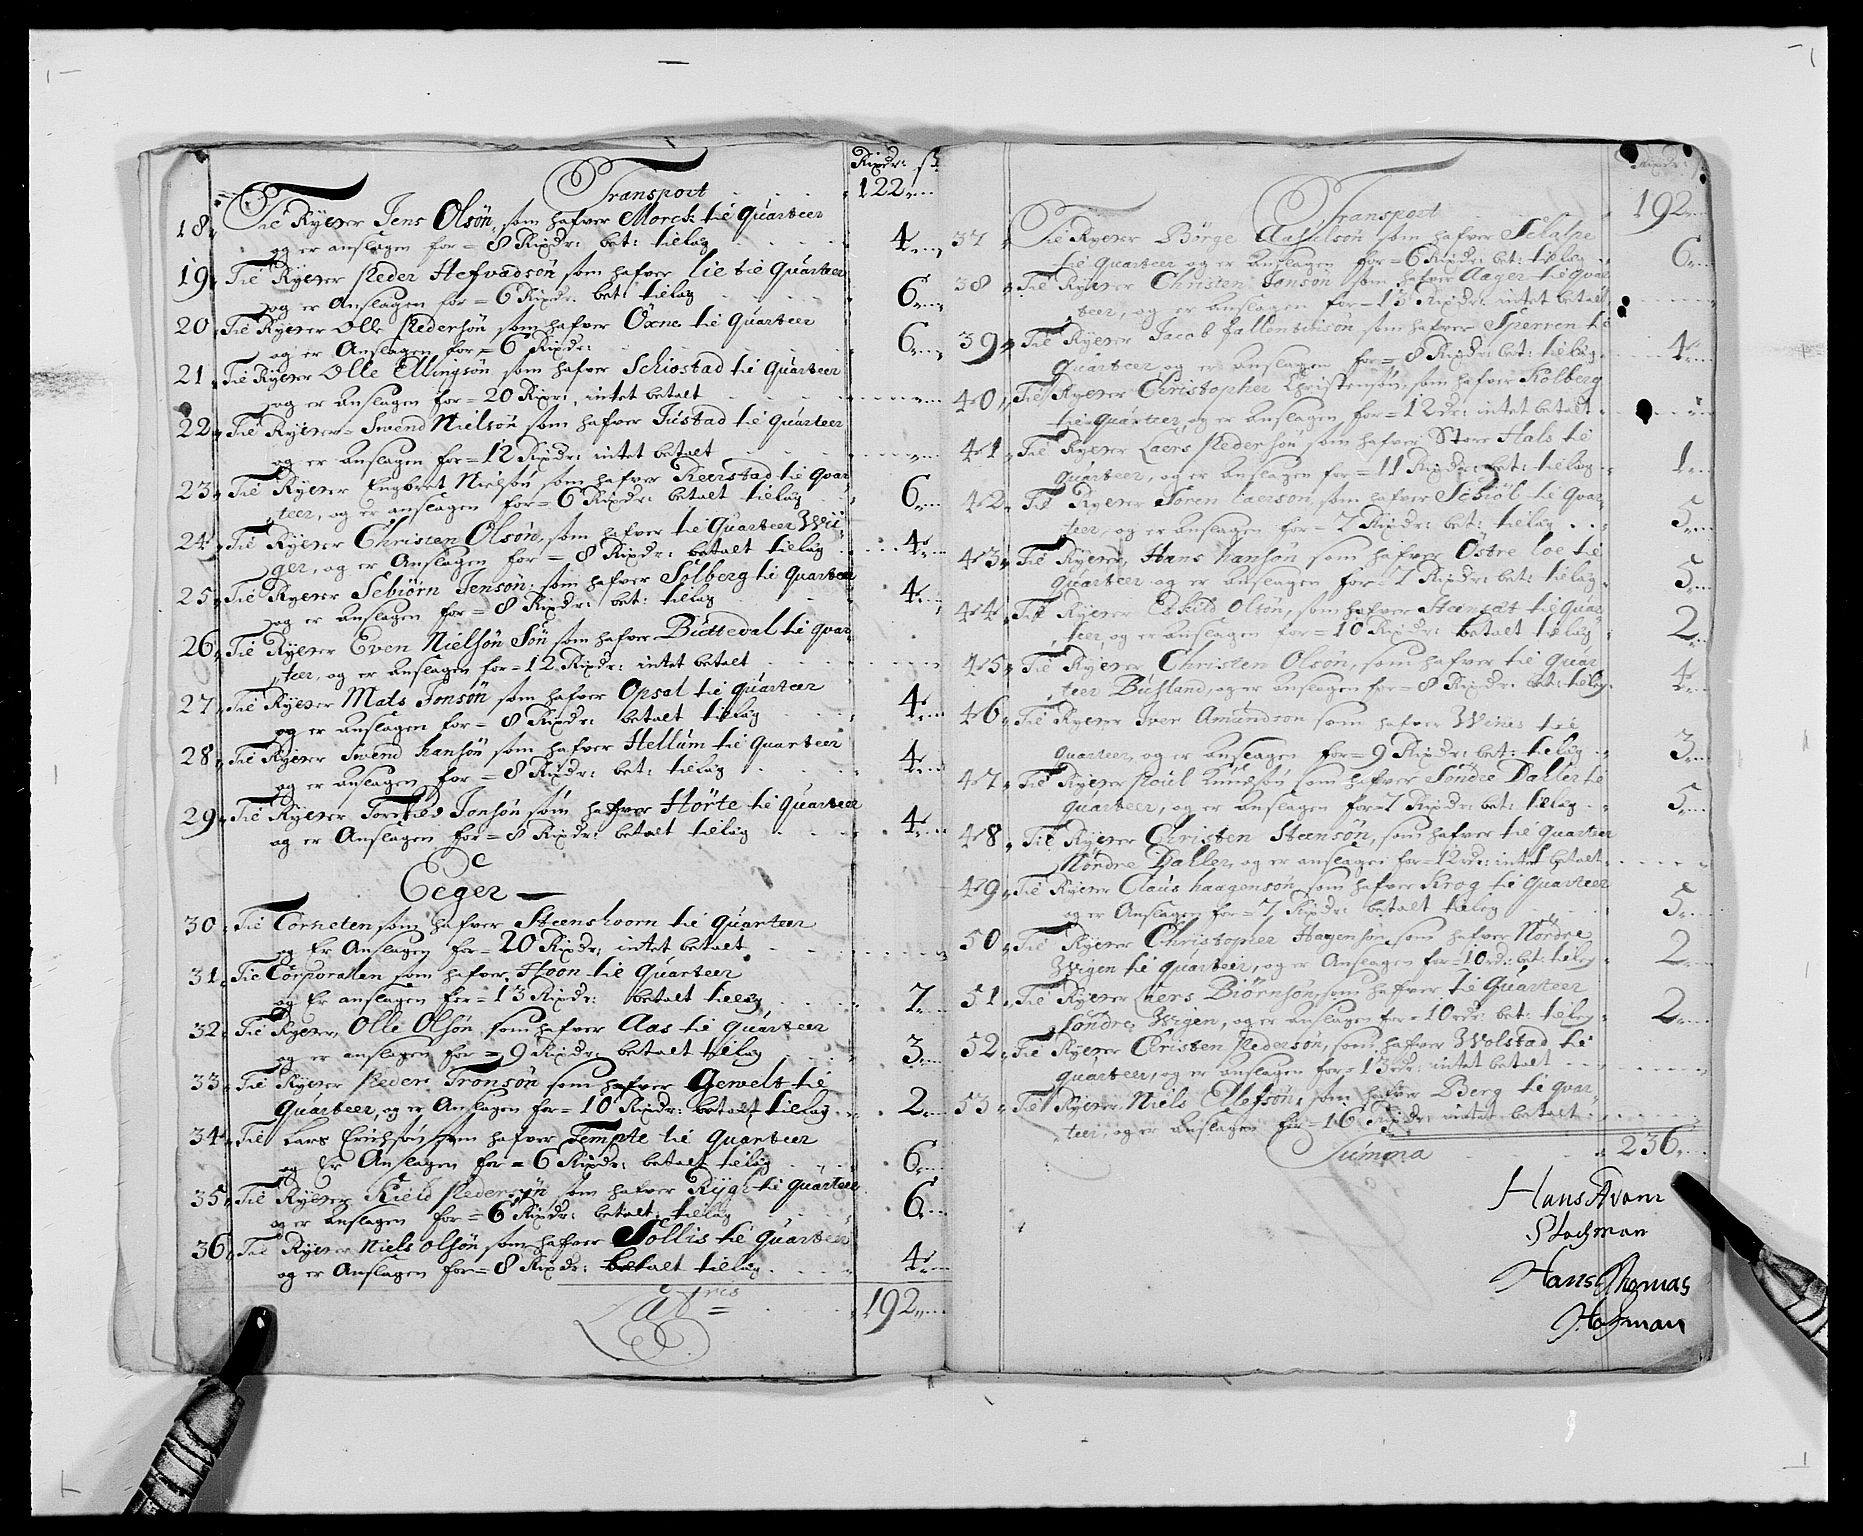 Rixdr: sk
Transport 122
18 Til Ryter Jens Olsøn, som hafver Morck til Quarteer
og er anslagen for = 8 Rixdr: bet: tillag 4
19 Til Ryter Peder Hefvadsøn som hafver Lie til Quarteer
og er Anslagen for = 6 Rixdr: bet: tillag 6
20 Til Ryter Olle Pedersøn som hafver Oxne til Quarteer
og er Anslagen for = 6 Rixdr: 6
21 Til Ryter Olle Ellingsøn som hafver Schiøstad til Quarteer
og er Anslagen for = 20 Rixr: intet betalt
22 Til Ryter Swend Nielsøn som hafver Justad til Quarteer
og er Anslagen for = 12 Rixdr: intet betalt
23 Til Ryter Engbret Nielsøn som hafver Keerstad til Qvar
teer, og er anslagen for = 6 Rixdr: betalt tillag 6
24 Til Ryter Christen Olsøn, som hafver til Quarteer Wii
ger, og er Anslagen for = 8 Rixdr: betalt tillag 4
25 Til Ryter Sebiørn Jensøn, som hafver Solberg til Quarteer
og er Anslagen for = 8 Rixdr: bet: tillag 4
26 Til Ryter Even Nielsøn Søn som hafver Butteval til Qvar
teer, og er Anslagen for = 12 Rixdr: intet betalt
27 Til Ryter Mats Jonsøn som hafver Opsal til Quarteer
og er Anslagen for = 8 Rixdr: betalt tillag 4
28 Til Ryter Swend hansøn som hafver Hellum til Quarteer
og er Anslagen for = 8 Rixdr: bet: tillag 4
29 Til Ryter Jonsøn som hafver Hørte til Quarteer
og er Anslagen for = 8 Rixdr: betalt tillag 4
Eeger
30 Til Corneten som hafver Steenshoorn til Quarteer
og Er Anslagen for = 20 Rixdr: intet betalt
31 Til Corporalen som hafver Hoon til Quarteer
og Er anslagen for = 13 Rixdr: betalt tillag 7
32 Til Ryter Olle Olsøn som hafver Aas til Quarteer
og er anslagen for = 9 Rixdr: betalt tillag 3
33 Til Ryter Peder Tronsøn som hafver Gewelt til
Quarteer, og er Anslagen for = 10 Rixdr: betalt tillag 2
34 Til Lars Erichsøn som hafver Tempte til Quarteer
og Er Anslagen for = 6 Rixdr: betalt tillag 6
35 Til Ryter Kield Pedersøn som hafver Rygh til Quarteer
og er Anslagen for = 6 Rixdr: betalt tillag 6
36 Til Ryter Niels Olsøn som hafver Sollis til Quarteer
og er Anslagen for = 8 Rixdr: betalt tillag 4
Latris 192
Rixdr:
Transport 192
37 Til Ryter Børge Axselsøn som hafver
til Quarteer og er Anslagen for = 6 Rixdr: bet: tillag 6
38 Til Ryter Christen Jonsøn som hafver Aager til Qvar
teer, og er Anslagen for = 13 Rixdr: intet betalt
39 Til Ryter Jacob fallentinsøn som hafver Sperren til
Quarteer, og er Anslagen for = 8 Rixdr: bet: tillag 4
40 Til Ryter Christopher Christensøn, som hafver Kolberg
til Quarteer, og er Anslagen for = 12 dr: intet betalt
41 Til Ryter Laers Pedersøn som hafver Store Hals til
Quarteer, og er Anslagen for = 11 Rixdr: bet: tillag 1
42 Til Ryter Søren Laersøn, som hafver Schiøl til Qvar
teer, og er Anslagen for = 7 Rixdr: bet: tillag 5
43 Til Ryter, Hans hansøn som hafver Østre Loe til
Quarteer og er Anslagen for = 7 Rixdr: bet: tillag 5
44 Til Ryter Eskild Olsøn, som hafver Steensæt til Quar
teer, og er Anslagen for = 10 Rixdr: betalt tillag 2
45 Til Ryter Christen Olsøn, som hafver til Quar
teer Buhland, og er Anslagen for = 8 Rixdr: bet: tillag 4
46 Til Ryter Iver Amundsøn som hafver Wines til
Quarteer, og er Anslagen for = 9 Rixdr: bet: tillag 3
47 Til Ryter Poul Knudsøn som hafver Søndre Daller til
Quarteer, og er Anslagen for = 7 Rixdr: bet: tillag 5
48 Til Ryter Christen Steensøn, som hafver til Quarteer
Nordre Daller, og er anslagen for = 12 rd: intet betalt
49 Til Ryter Claus haagensøn som hafver Krog til Quarteer
og er Anslagen for = 7 Rixdr: betalt tillag 5
50 Til Ryter Christopher Hagensøn, som hafver Nordre
Wigen til Quarteer, og er Anslagen for = 10 rd: bet: tillag 2
51 Til Ryter Laers Biørnsøn, som hafver til Quarteer
søndre Wigen, og er Anslagen for = 10 rdr: bet: tillag 2
52 Til Ryter Christen Pedersøn, som hafver Wolstad til
Quarteer, og er Anslagen for = 13 rdr: intet betalt
53 Til Ryter Niels Ellefsøn, som hafver Berg til Qvar
teer, og er Anslagen for = 16 Rixdr: intet betalt
Summa 236
Hans Avom
Stochman
Hans Thomas
Hofman